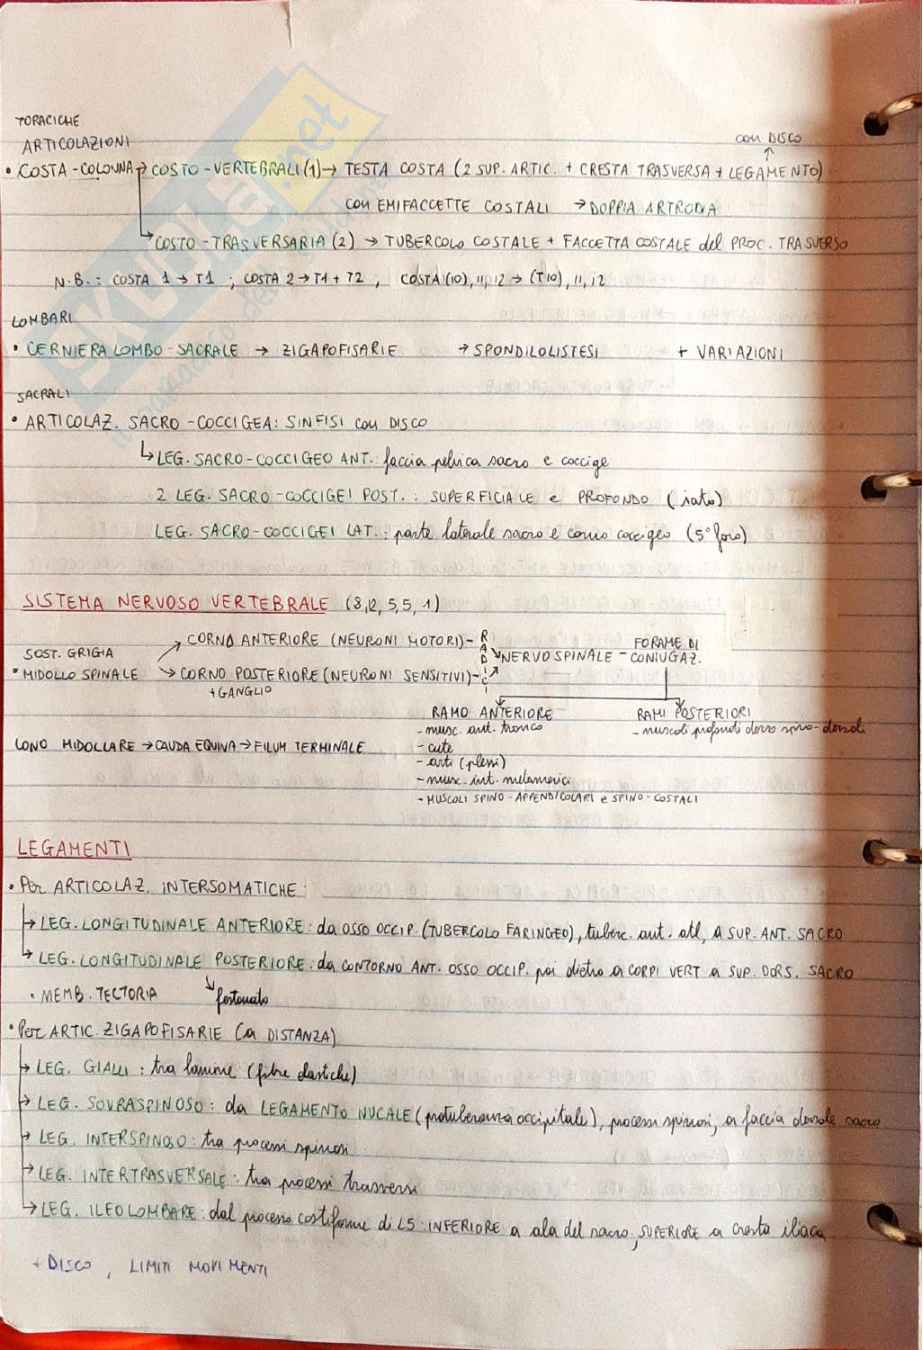 TORACICHE
ARTICOLAZIONI
con DISCO
↑
• COSTA-COLONNA → COSTO-VERTEBRALI (1) → TESTA COSTA (2 SUP. ARTIC. + CRESTA TRASVERSA + LEGAMENTO)
con EMIFACCETTE COSTALI → DOPPIA ARTRODIA
→ COSTO-TRASVERSARIA (2) → TUBERCOLO COSTALE + FACCETTA COSTALE del PROC. TRASVERSO
N.B.: COSTA 1 → T1 ; COSTA 2 → T1 + T2 , COSTA (10), 11, 12 → (T10), 11, 12
LOMBARI
• CERNIERA LOMBO-SACRALE → ZIGAPOFISARIE → SPONDILOLISTESI + VARIAZIONI
SACRALI
• ARTICOLAZ. SACRO-COCCIGEA: SINFISI con DISCO
↳ LEG. SACRO-COCCIGEO ANT.: faccia pelvica sacro e coccige
2 LEG. SACRO-COCCIGEI POST.: SUPERFICIALE e PROFONDO (iato)
LEG. SACRO-COCCIGEI LAT.: parte laterale sacro e corno coccigeo (5° foro)
SISTEMA NERVOSO VERTEBRALE (8,12,5,5,1)
SOST. GRIGIA
• MIDOLLO SPINALE
→ CORNO ANTERIORE (NEURONI MOTORI) -
→ CORNO POSTERIORE (NEURONI SENSITIVI) -
+ GANGLIO
RADICI
NERVO SPINALE - FORAME DI CONIUGAZ.
RAMO ANTERIORE
- musc. ant. tronco
- cute
- arti (plessi)
- musc. int. metamerici
- MUSCOLI SPINO-APPENDICOLARI e SPINO-COSTALI
RAMI POSTERIORI
- muscoli profondi dorso spino-dorsali
CONO MIDOLLARE → CAUDA EQUINA → FILUM TERMINALE
LEGAMENTI
• Per ARTICOLAZ. INTERSOMATICHE:
→ LEG. LONGITUDINALE ANTERIORE: da OSSO OCCIP. (TUBERCOLO FARINGEO), tuberc. ant. atl, a SUP. ANT. SACRO
→ LEG. LONGITUDINALE POSTERIORE: da CONTORNO ANT. OSSO OCCIP. poi dietro a CORPI VERT a SUP. DORS. SACRO
• MEMB. TECTORIA ↘ festonato
• Per ARTIC. ZIGAPOFISARIE (a DISTANZA)
→ LEG. GIALLI: tra lamine (fibre elastiche)
→ LEG. SOVRASPINOSO: da LEGAMENTO NUCALE (protuberanza occipitale), processi spinosi, a faccia dorsale sacro
→ LEG. INTERSPINOSO: tra processi spinosi
→ LEG. INTERTRASVERSALE: tra processi trasversi
→ LEG. ILEOLOMBARE: dal processo costiforme di L5: INFERIORE a ala del sacro, SUPERIORE a cresta iliaca
+ DISCO, LIMITI MOVIMENTI